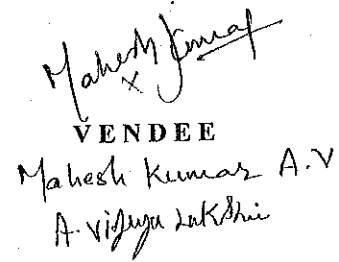 Mahesh Kumar
x
VENDEE
Mahesh Kumar A.V
A. Vijaya Lakshmi